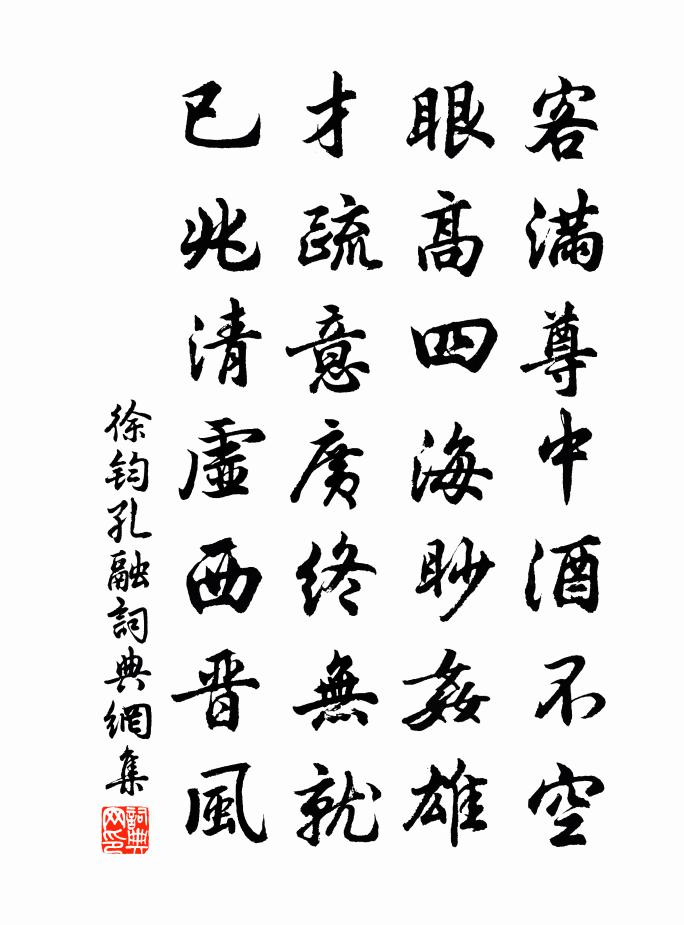 客滿尊中酒不空
眼高四海眇姦雄
才疏意廣終無就
已兆清虛西晉風
徐鈞孔融詞典網集
詞典網印